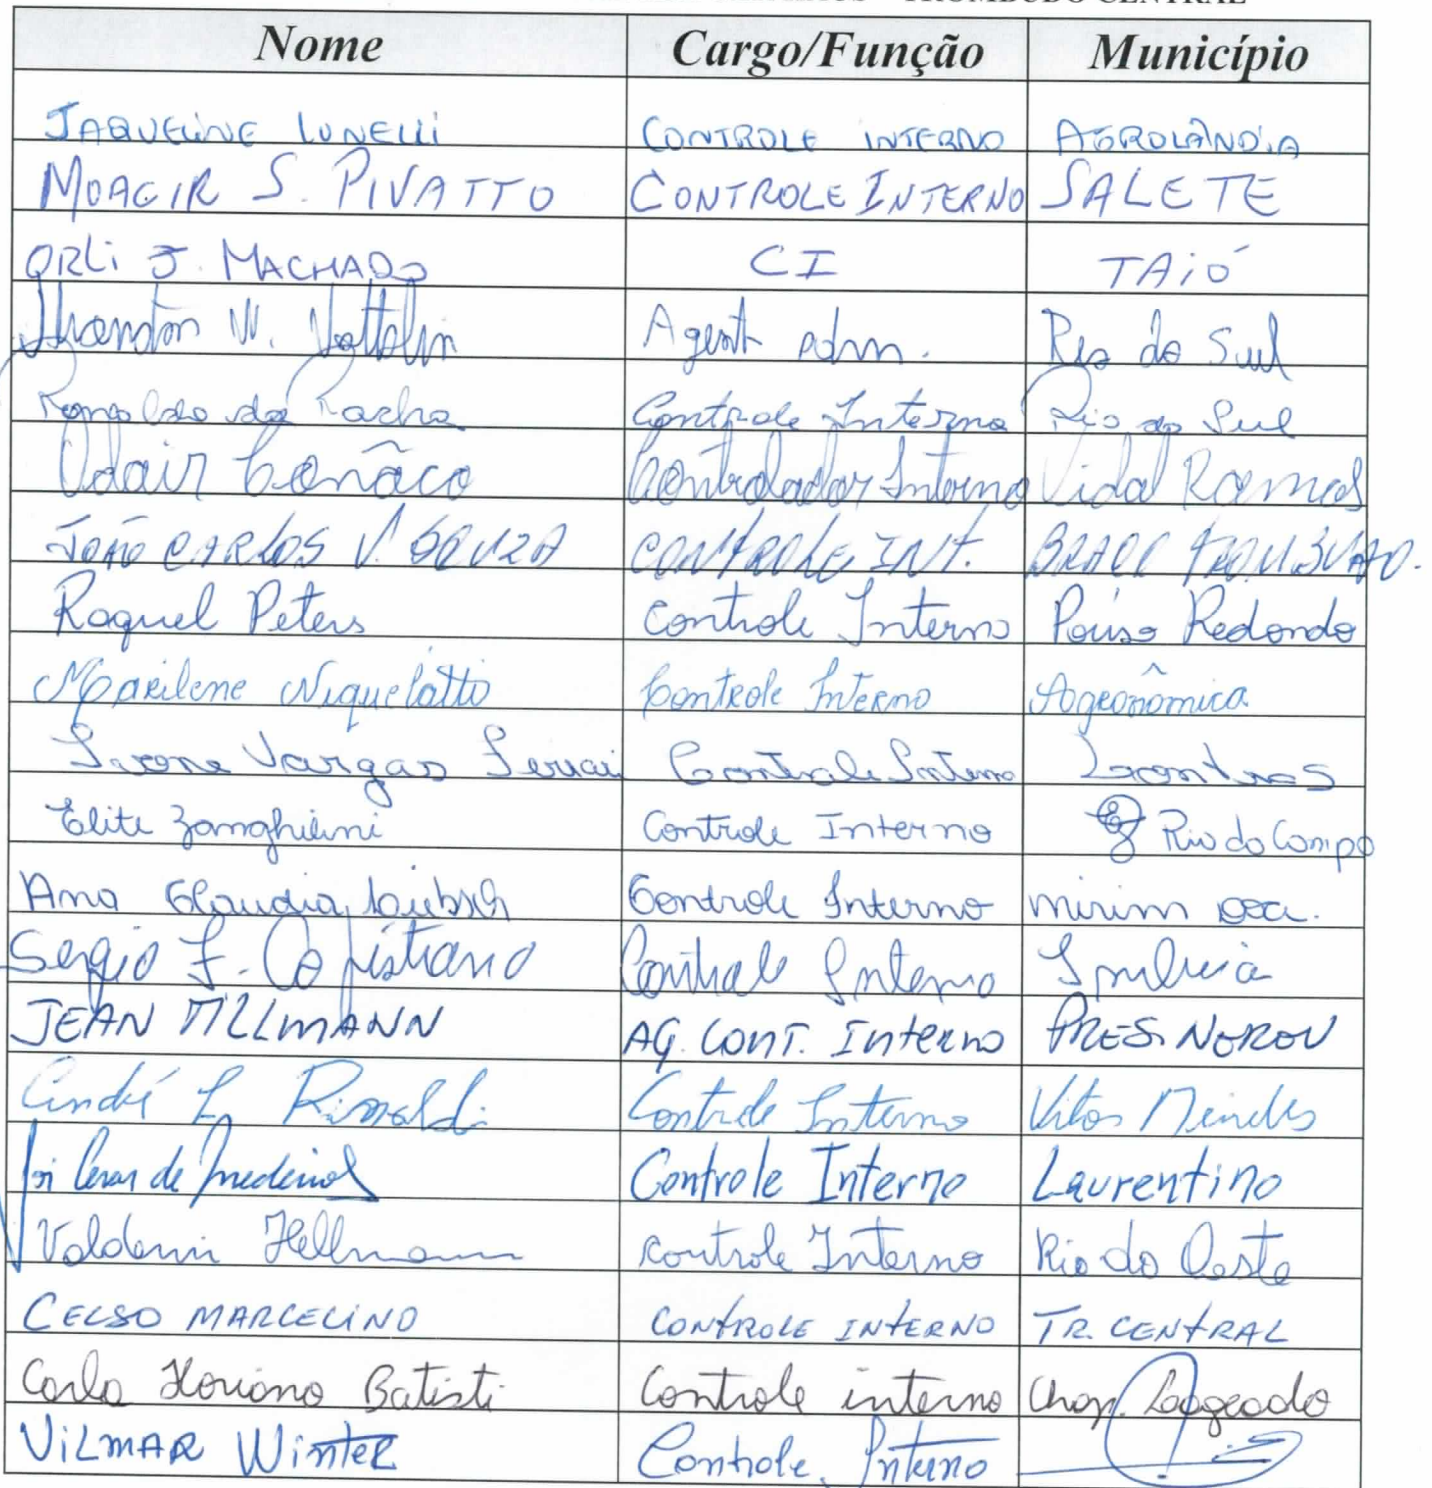 TROMBUDO CENTRAL
Nome Cargo/Função Município
JAQUELINE LUNELLI CONTROLE INTERNO AGROLÂNDIA
MOACIR S. PIVATTO CONTROLE INTERNO SALETE
ORLI J. MACHADO CI TAIÓ
W. Agent adm. Rio do Sul
Ronaldo da Rocha Controle Interno Rio do Sul
Odair Conáco Controlador Interno Vidal Ramos
JOÃO CARLOS V. SOUZA CONTROLE INT. BRAÇO TROMBUDO.
Raquel Peters Controle Interno Pouso Redondo
Marilene Niquelatti Controle Interno Agronômica
Vargas Controle Interno Lontras
Elite Zanghelini Controle Interno Rio do Campo
Ana Claudia Controle Interno mirim doce.
Sergio F. Capistrano Controle Interno Imbuia
JEAN TILLMANN AG. CONT. Interno PRES. NEREU
André L. Rinaldi Controle Interno Vitor Meireles
Cesar de medeiros Controle Interno Laurentino
Valdemir Hellmann Controle Interno Rio do Oeste
CELSO MARCELINO CONTROLE INTERNO TR. CENTRAL
Carla Floriano Batisti Controle interno Chap. Lageado
VILMAR Winter Controle Interno